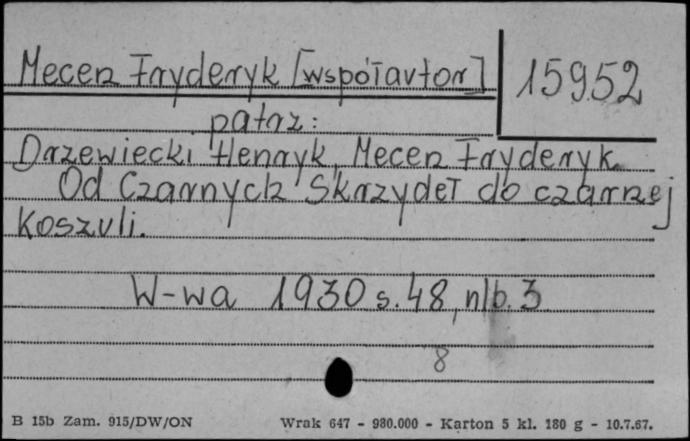 Mecen Fryderyk [współautor]
15952
patrz:
Drzewiecki Henryk, Mecen Fryderyk
Od Czarnych Skrzydeł do czarnej
Koszuli.
W-wa 1930 s. 48, nlb. 3
8
B 15b Zam. 915/DW/ON Wrak 647 - 980.000 - Karton 5 kl. 180 g - 10.7.67.